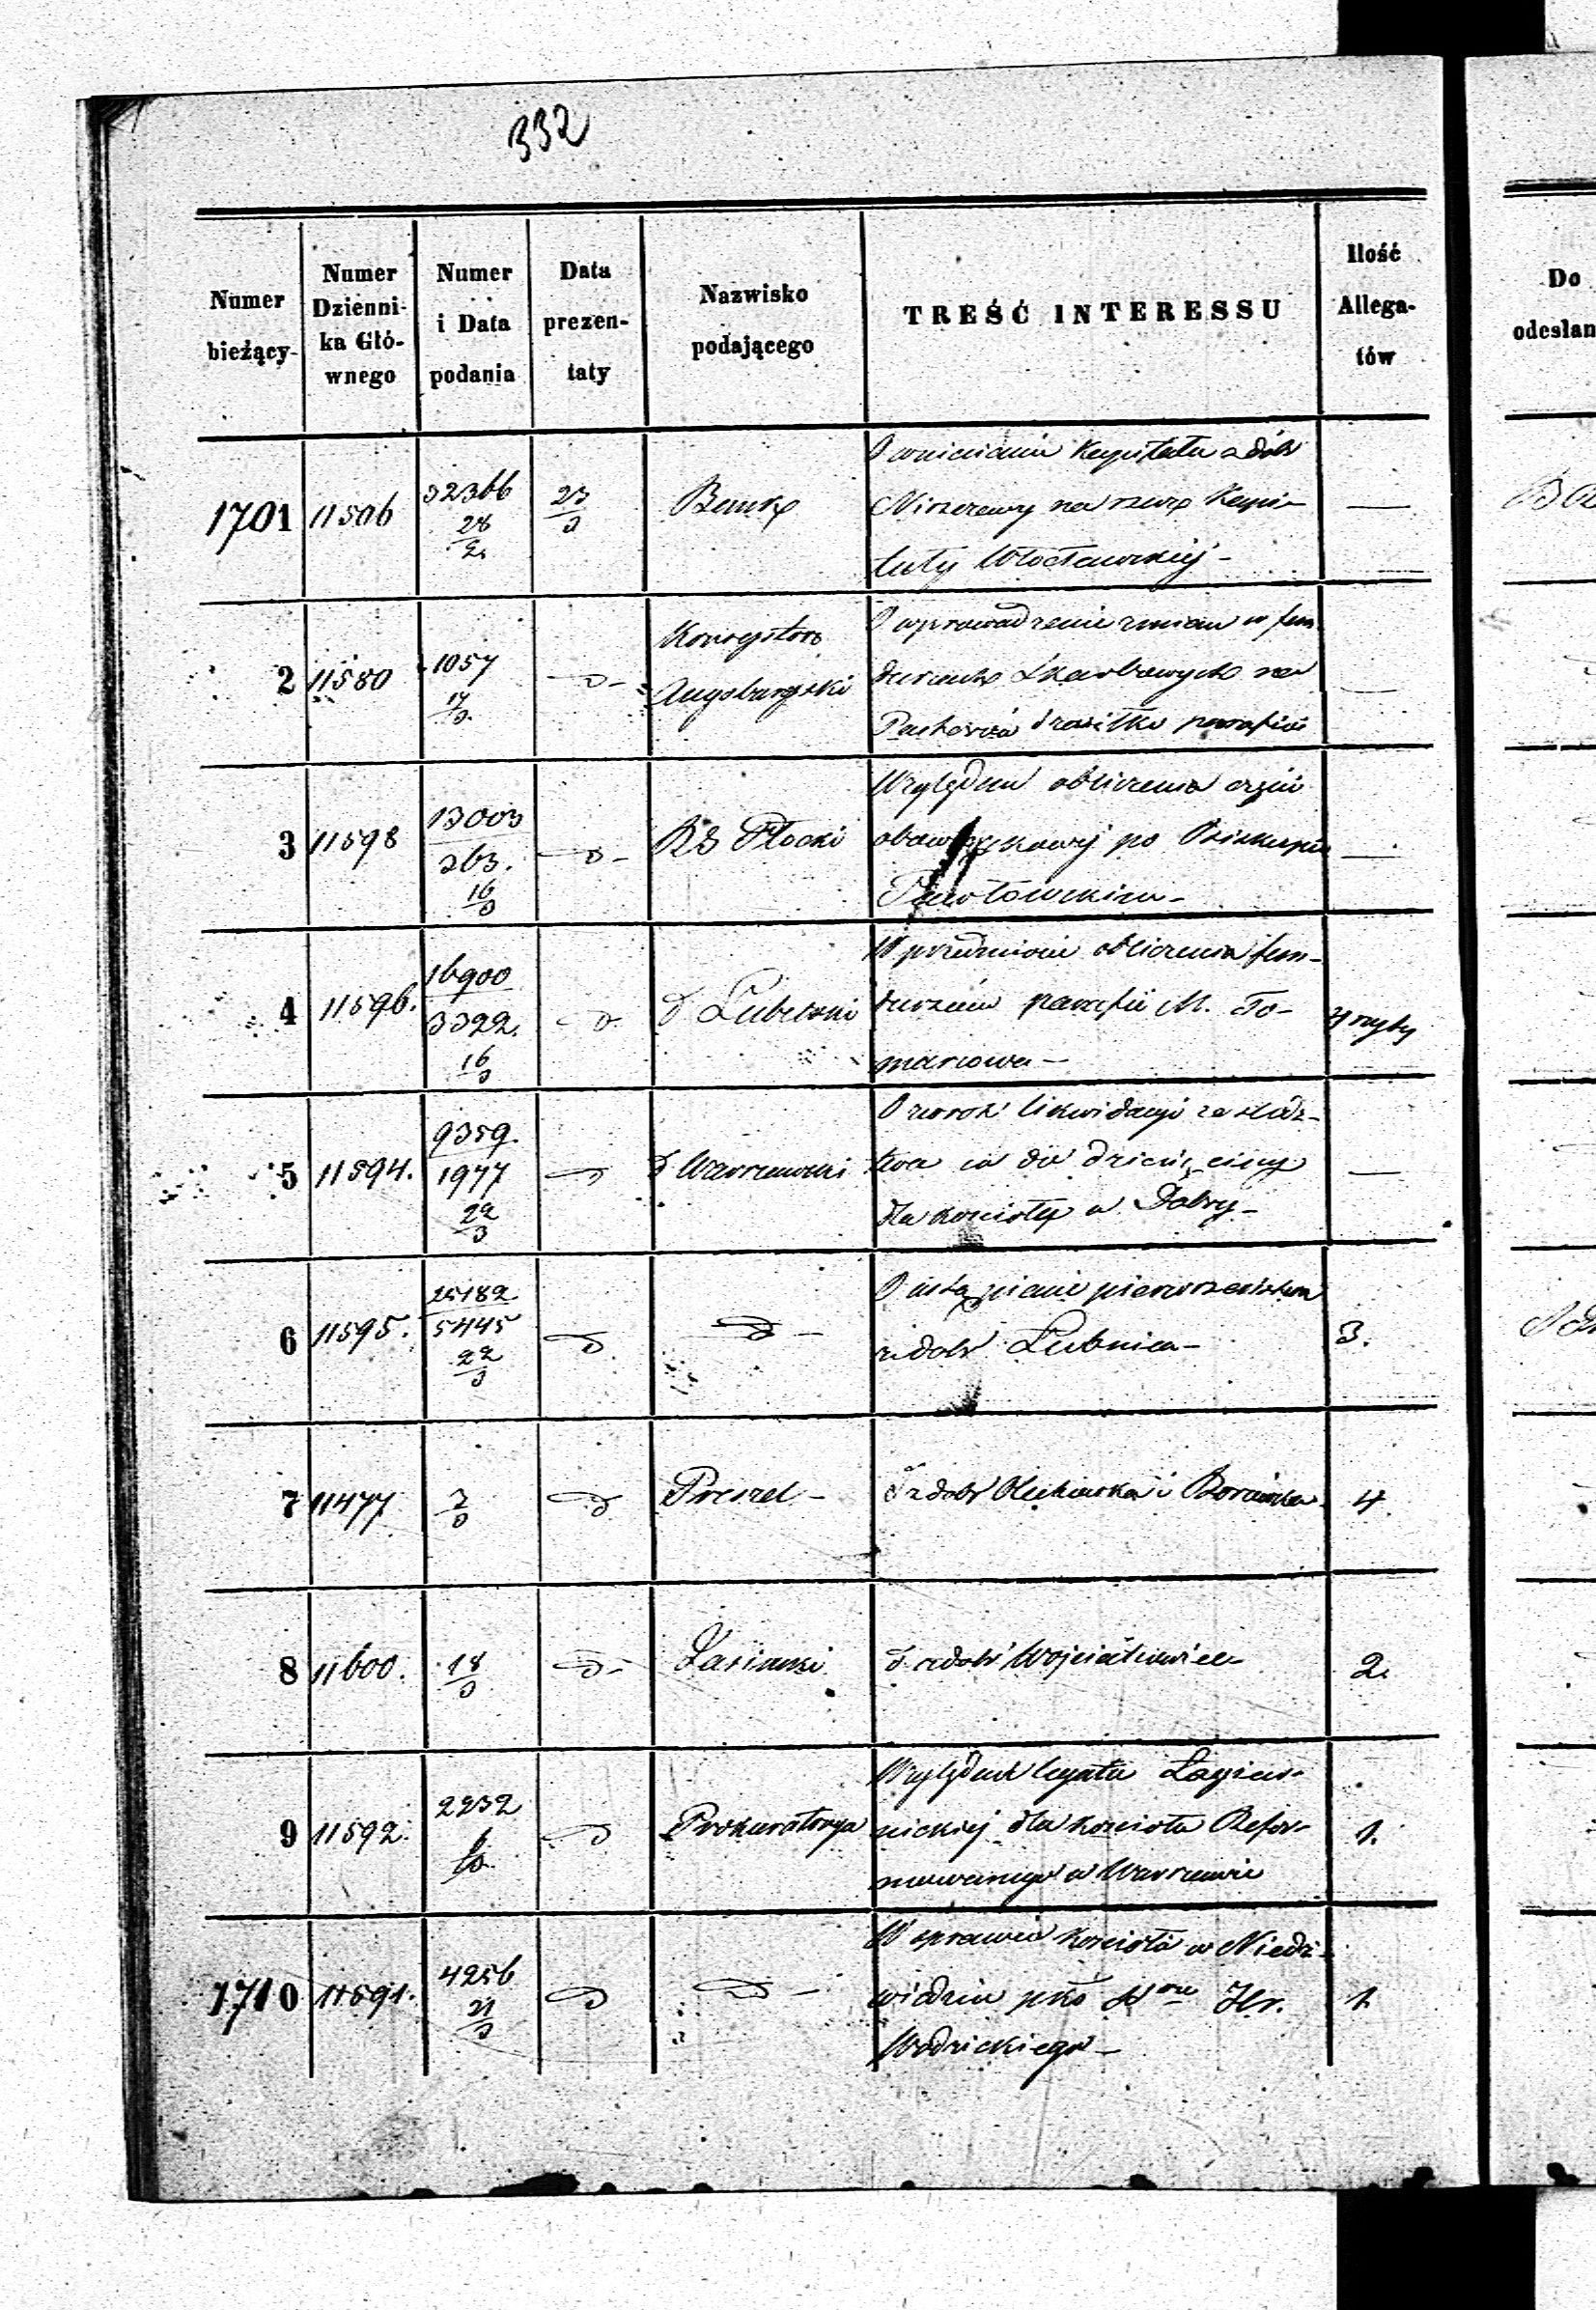 332
Numer bieżący
Numer Dzienni- ka Głó- wnego
Numer i Data podania
Data prezen- taty
Nazwisko podającego
TREŚĆ INTERESSU
Ilość Allega- tów
Do odesłan
1701 11506 32366 28/2 23/3 Bank
O wniesienie Kapitału z dóbr
Niszczewy na rzecz Kapi-
tuły Włocławskiej -
2 11580 1057 17/3 -d- Konsystorz Augsburgski
O wprowadzenie zmian w fun
duszach Skarbowych na
Pastorów i zasiłki parafii
3 11598 13003 363. 16/3 -d- RG Płocki
Względem obliczenia
po Biskupie
Pawłowskim -
4 11596. 16900 3322. 16/3 -d- d Lubelski
W przedmiocie obliczenia fun-
duszów parafii M. To-
maszowa -
5 11594. 9359. 1977 22/3 -d- d Warszawski
O zwrot likwidacyi za śledz-
twa co do dziesięciny
dla kościoła w Dobry -
6 11595. 25182 5445 22/3 -d- -d-
O ustąpienie pierwszeństwa
z dóbr Łubnica -
3.
7 11477 3/3 -d- Preszel -
d z dóbr i
4.
8 11600. 18/3 -d- Łasinski
d z dóbr
2.
9 11592. 2232 -d- Prokuratorya
Względem legatu Łagiew-
nickiej dla kościoła Refor-
mowanego w Warszawie
1.
1710 11591. 4256 21/3 -d- -d-
W sprawie Kościoła w Niedź-
wiedziu pko Hr.
Wodzickiego -
1